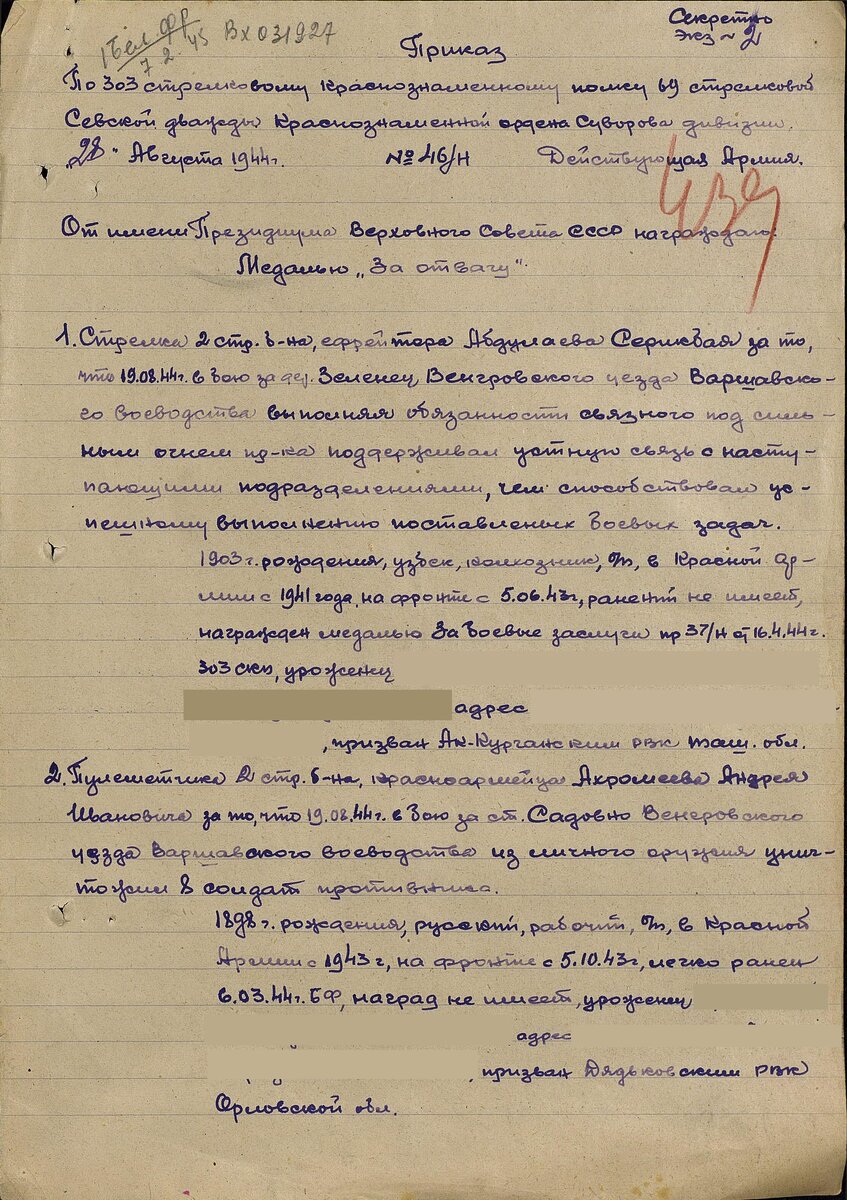 1 Бел фр
7 2. 45 Вх 031927
Секретно
Экз № 2
Приказ
По 303 стрелковому Краснознаменному полку 69 стрелковой
Севской дважды Краснознаменной ордена Суворова дивизии.
"28" Августа 1944г. № 46/Н Действующая Армия.
От имени Президиума Верховного Совета СССР награждаю:
Медалью „За отвагу".
1. Стрелка 2 стр. б-на, ефрейтора Абдулаева Серикбая за то,
что 19.08.44г. в бою за дер. Зеленец, Венгровского уезда Варшавско-
го воеводства выполняя обязанности связного под силь-
ным огнем пр-ка поддерживал устную связь с насту-
пающими подразделениями, чем способствовал ус-
пешному выполнению поставленых боевых задач.
1903 г. рождения, узбек, колхозник, б/п, в Красной ар-
мии с 1941 года, на фронте с 5.06.43г, ранений не имеет,
награжден медалью За боевые заслуги пр 37/Н от 16.4.44г.
303 скп, уроженец
адрес
, призван Ак-Курганским РВК таш. обл.
2. Пулеметчика 2 стр. б-на, красноармейца Ахромеева Андрея
Ивановича за то, что 19.08.44г. в бою за ст. Садовно Венгровского
уезда Варшавского воеводства из личного оружия унич-
тожил 8 солдат противника.
1898 г. рождения, русский, рабочий, б/п, в Красной
Армии с 1943 г, на фронте с 5.10.43г, легко ранен
6.03.44г. БФ, наград не имеет, уроженец
адрес
, призван Дядьковским РВК
Орловской обл.